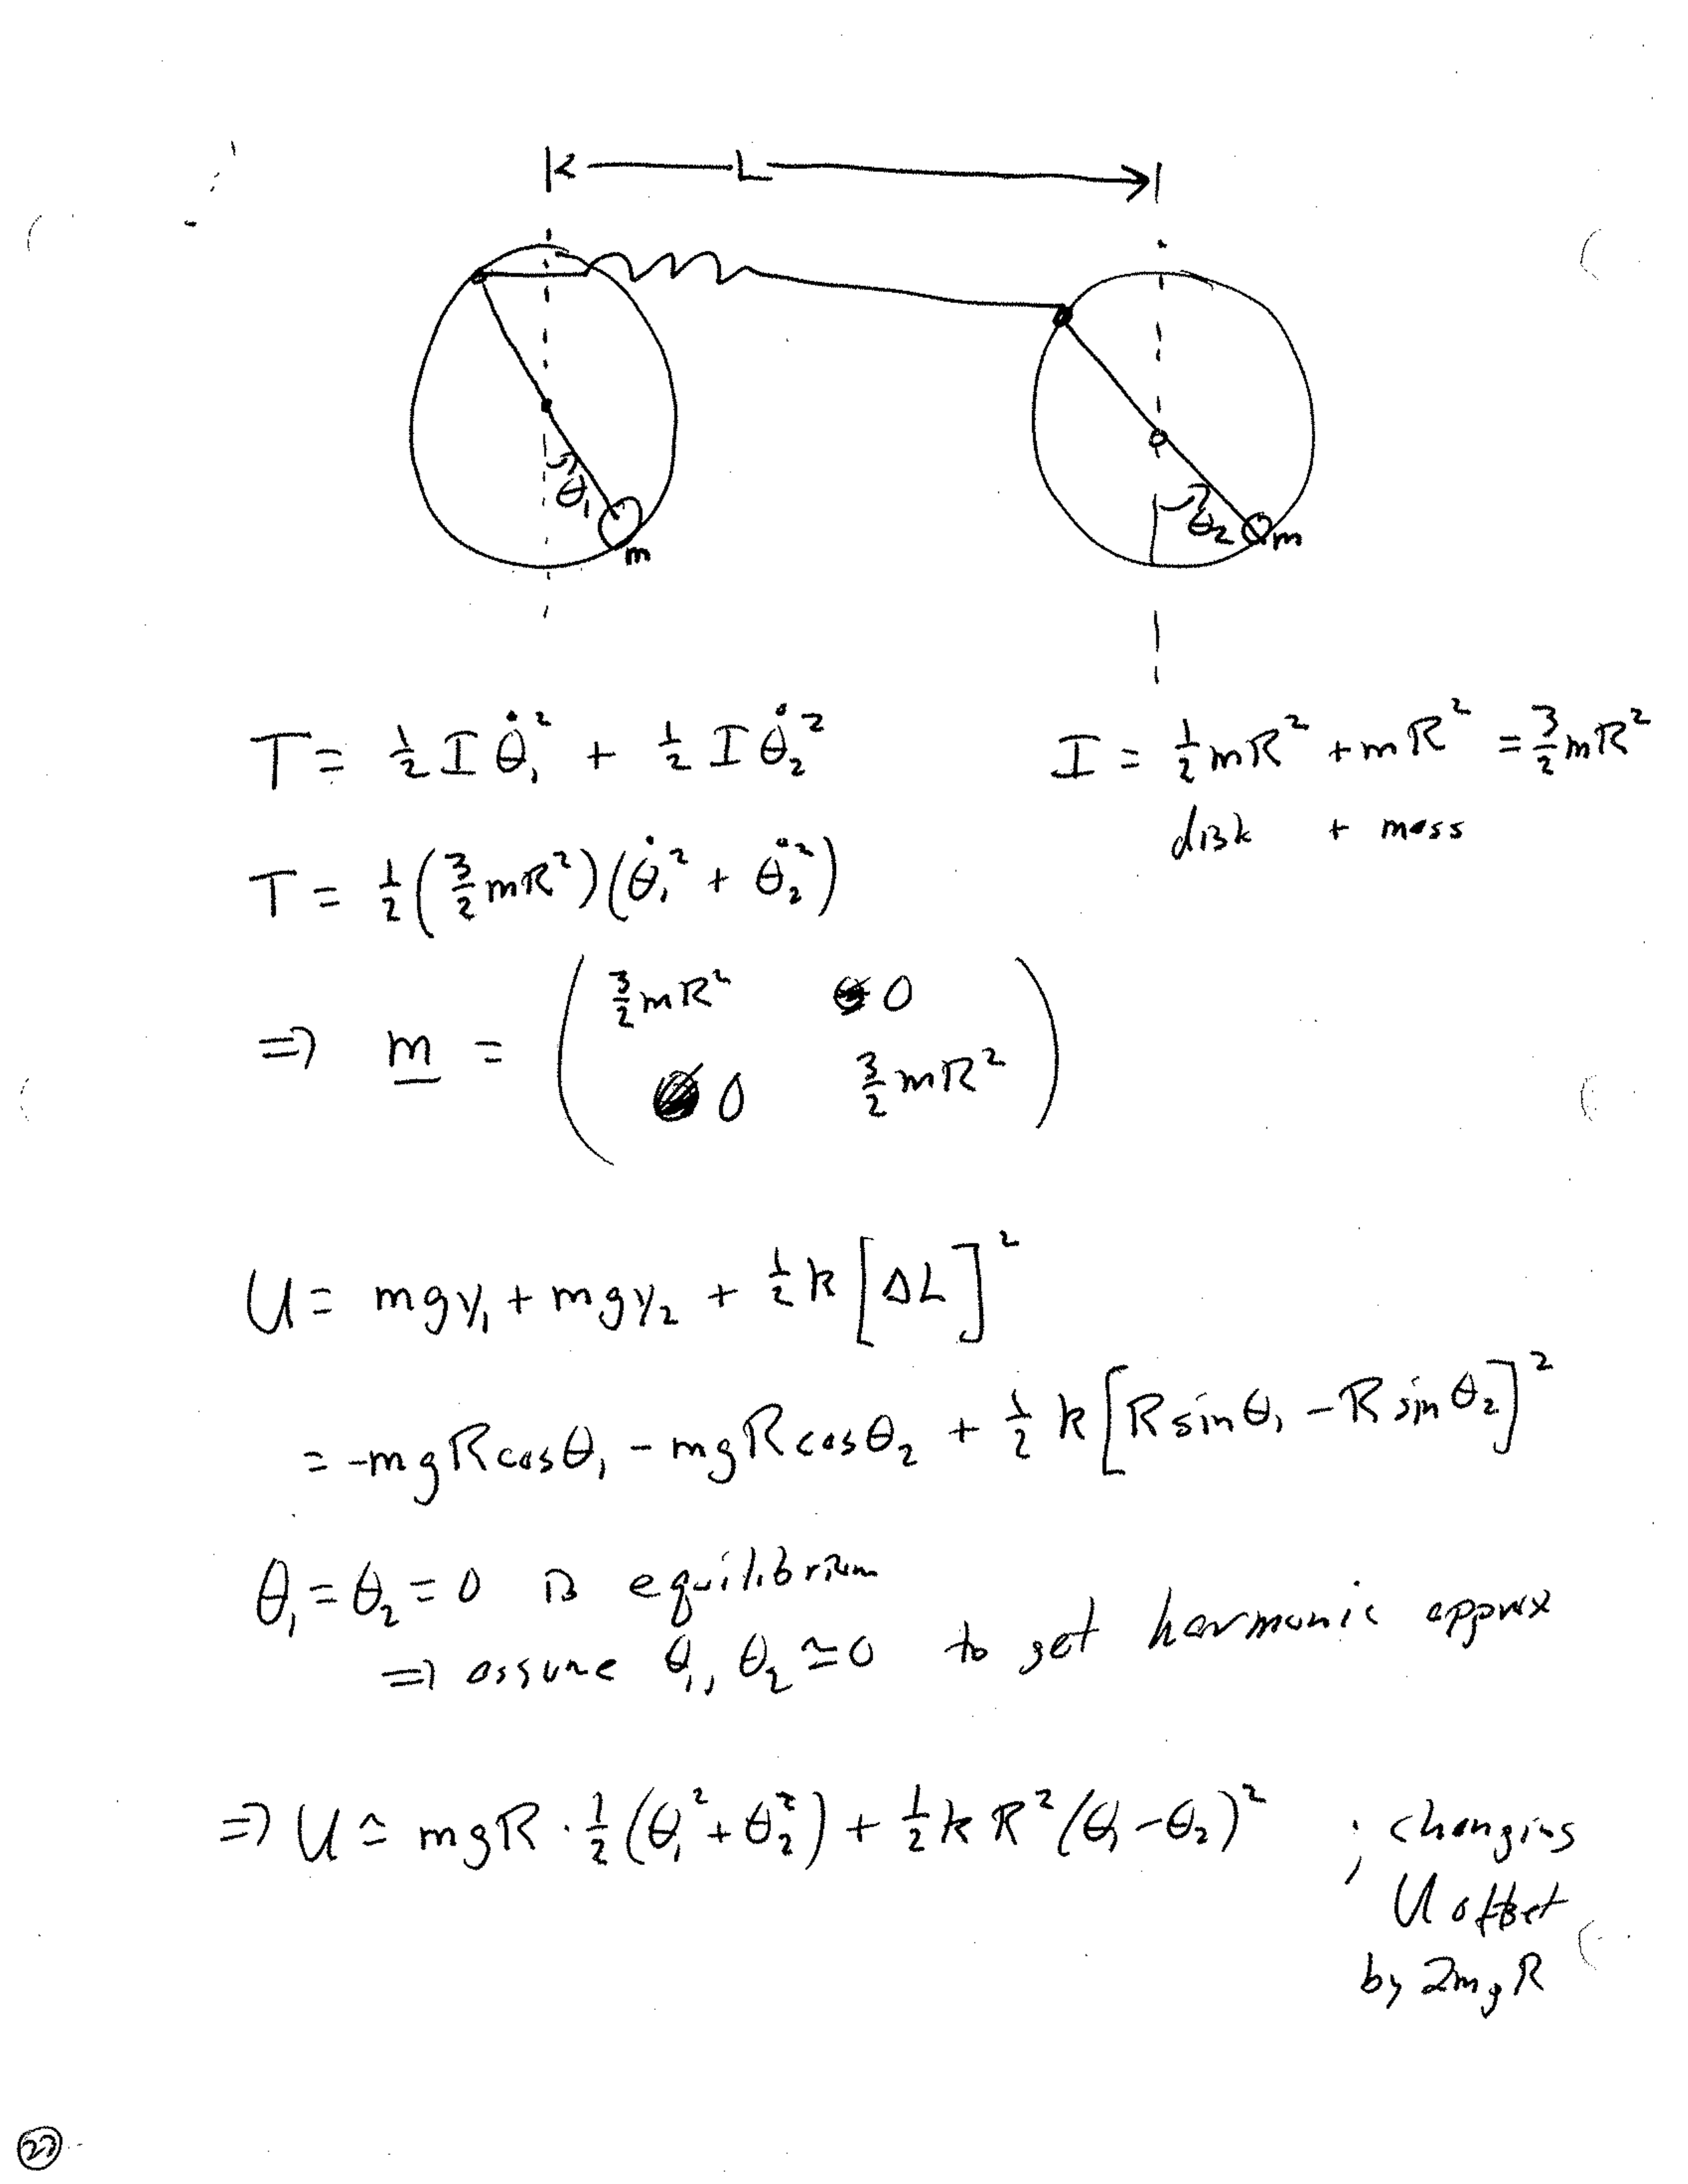 L
θ₁
m
θ₂
m
T = ½ I θ̇₁² + ½ I θ̇₂²
I = ½ mR² + mR² = 3/2 mR²
disk + mass
T = ½ (3/2 mR²)(θ̇₁² + θ̇₂²)
⇒ m = ( 3/2 mR² 0
0 3/2 mR² )
U = mgy₁ + mgy₂ + ½ k [ΔL]²
= -mgR cosθ₁ - mgR cosθ₂ + ½ k [R sinθ₁ - R sinθ₂]²
θ₁ = θ₂ = 0 is equilibrium
⇒ assume θ₁, θ₂ ≃ 0 to get harmonic approx
⇒ U ≃ mgR · ½ (θ₁² + θ₂²) + ½ k R² (θ₁ - θ₂)² ; changing
U offset
by 2mgR